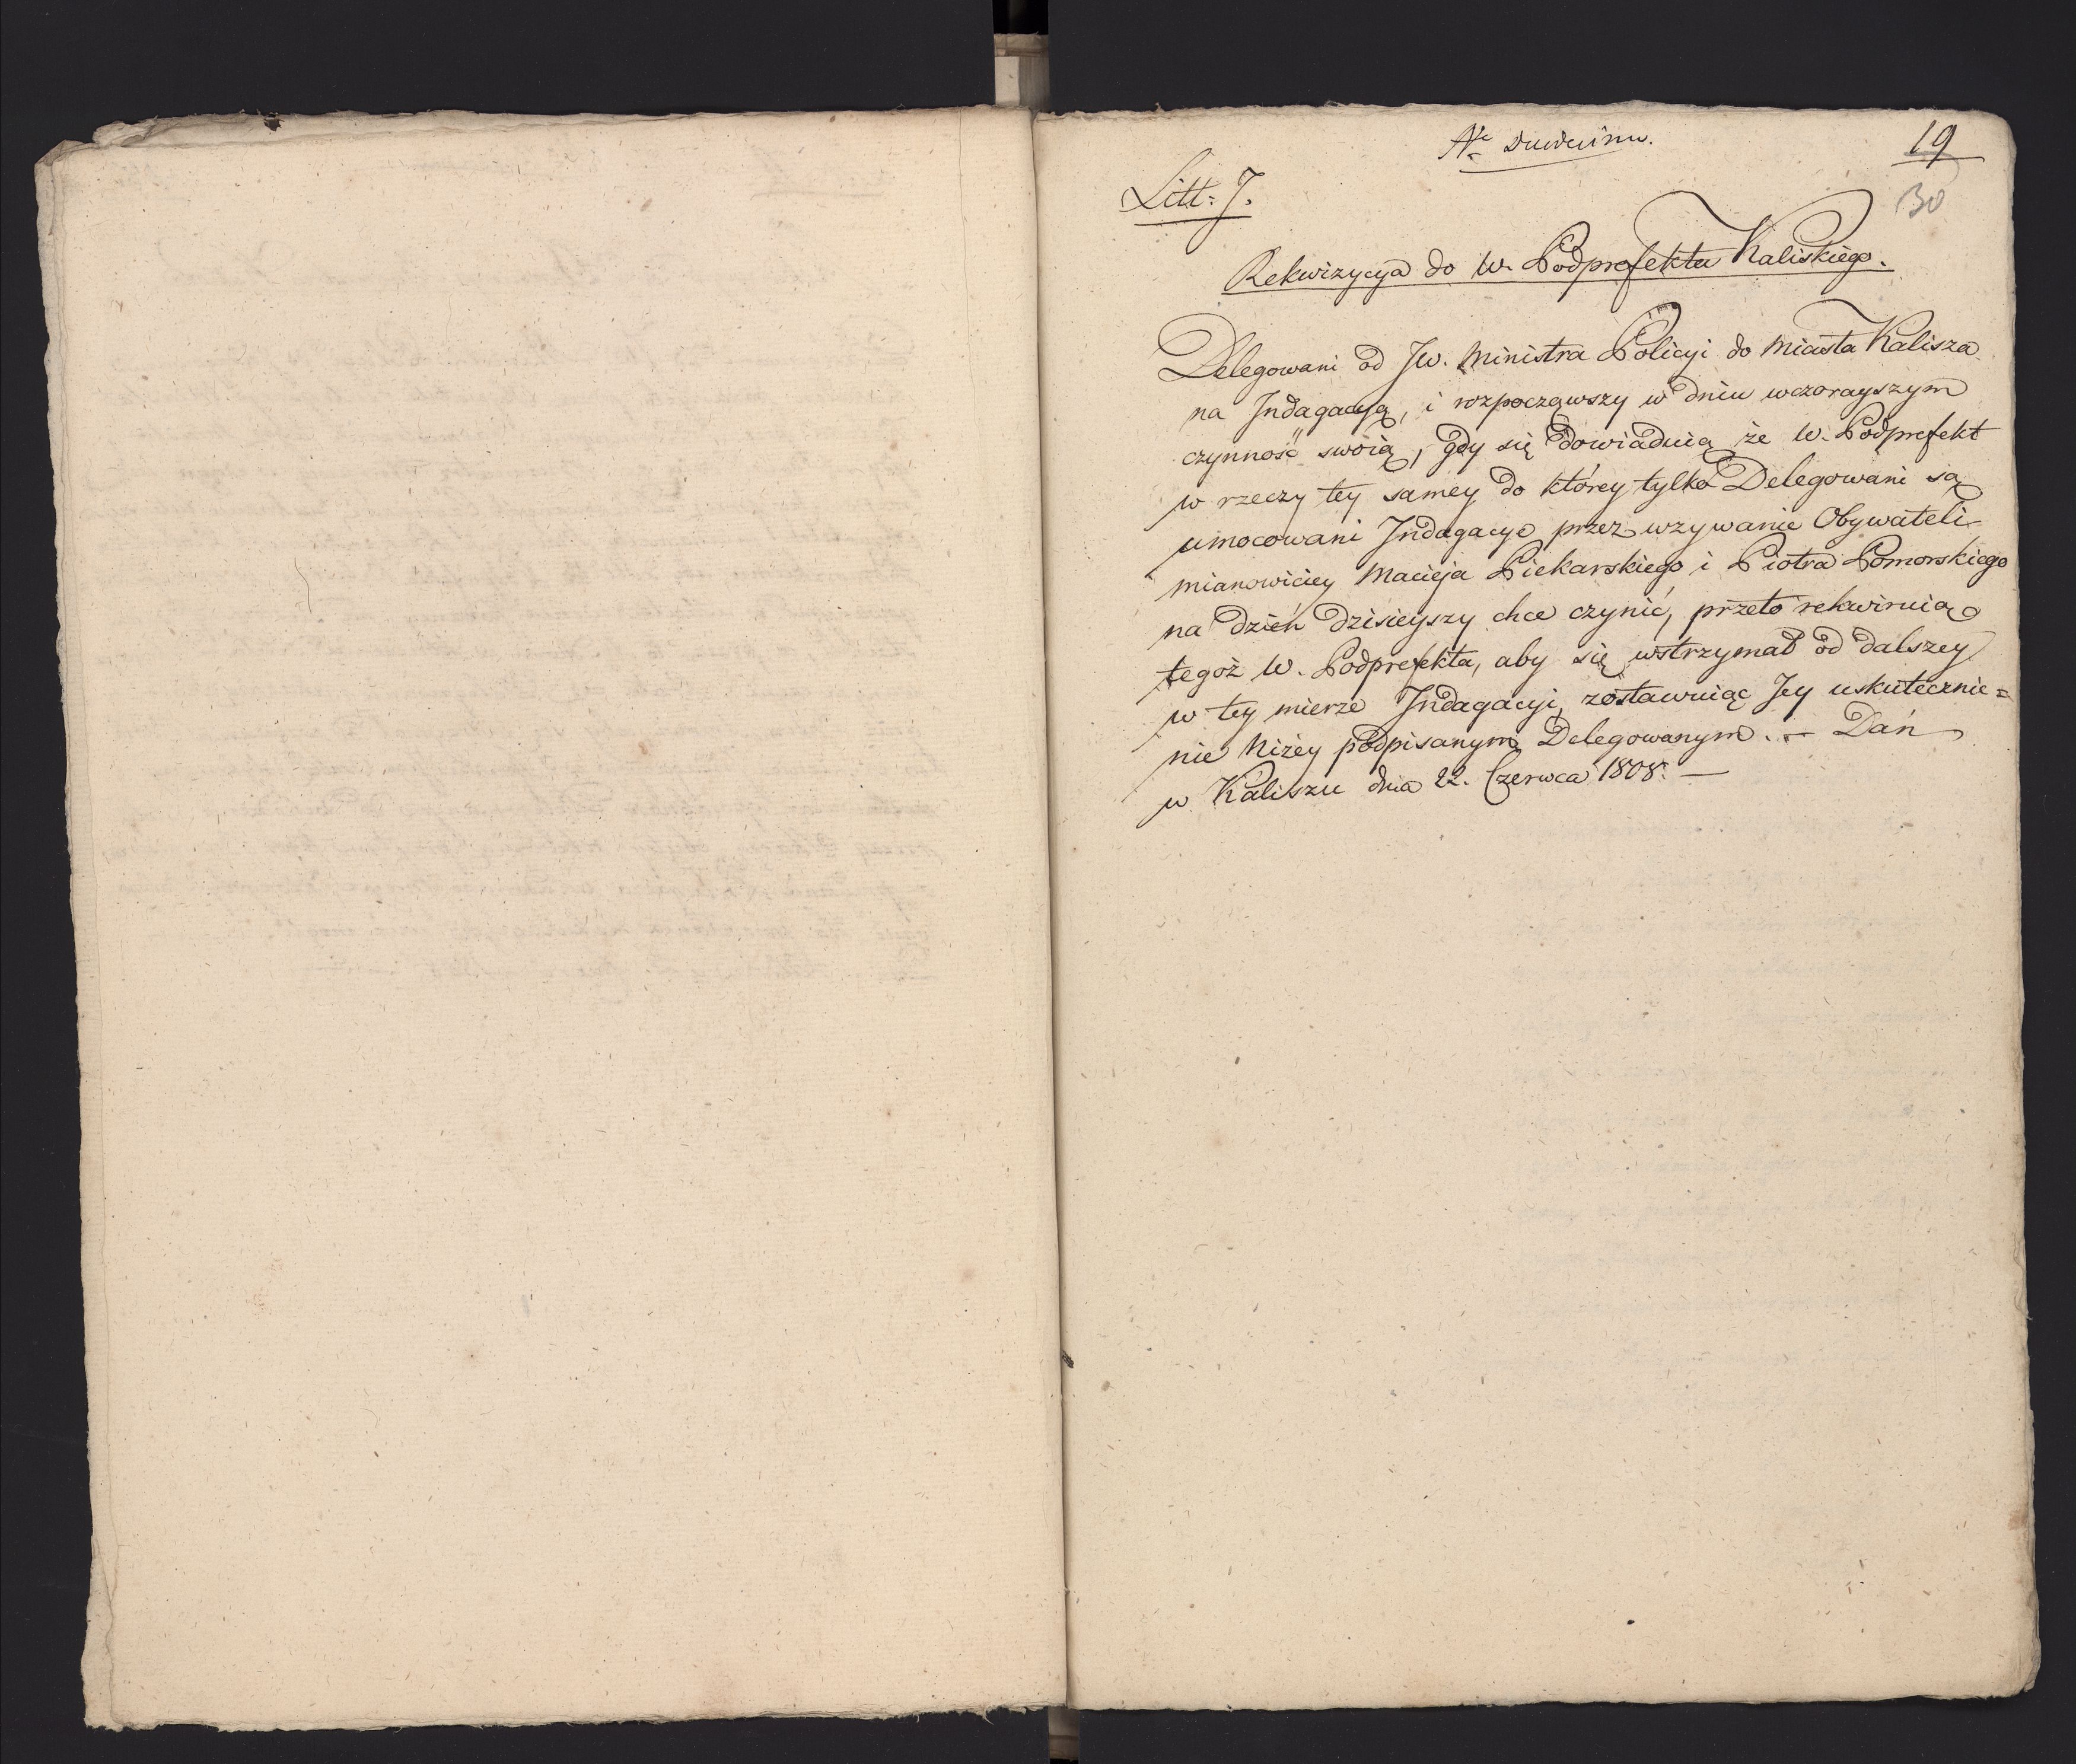 Nr
19
Litt: J.
30
Rekwizycya do W. Podprefekta Kaliskiego.
Delegowani od JW. Ministra Policyi do Miasta Kalisza
na Indagacyą, i rozpocząwszy w dniu wczorayszym
czynność swoią, gdy się dowiaduią że W. Podprefekt
w rzeczy tey samey do którey tylko Delegowani są
umocowani Indagacye przez wzywanie Obywateli
mianowiciey Macieja Piekarskiego i Piotra Pomorskiego
na dzień dzisieyszy chce czynić, przeto rekwiruią
tegoż W. Podprefekta, aby się wstrzymał od dalszey
w tey mierze Indagacyi, zostawuiąc Jey uskutecznie=
nie niżey podpisanym Delegowanym. — Dań
w Kaliszu dnia 22. Czerwca 1808. —